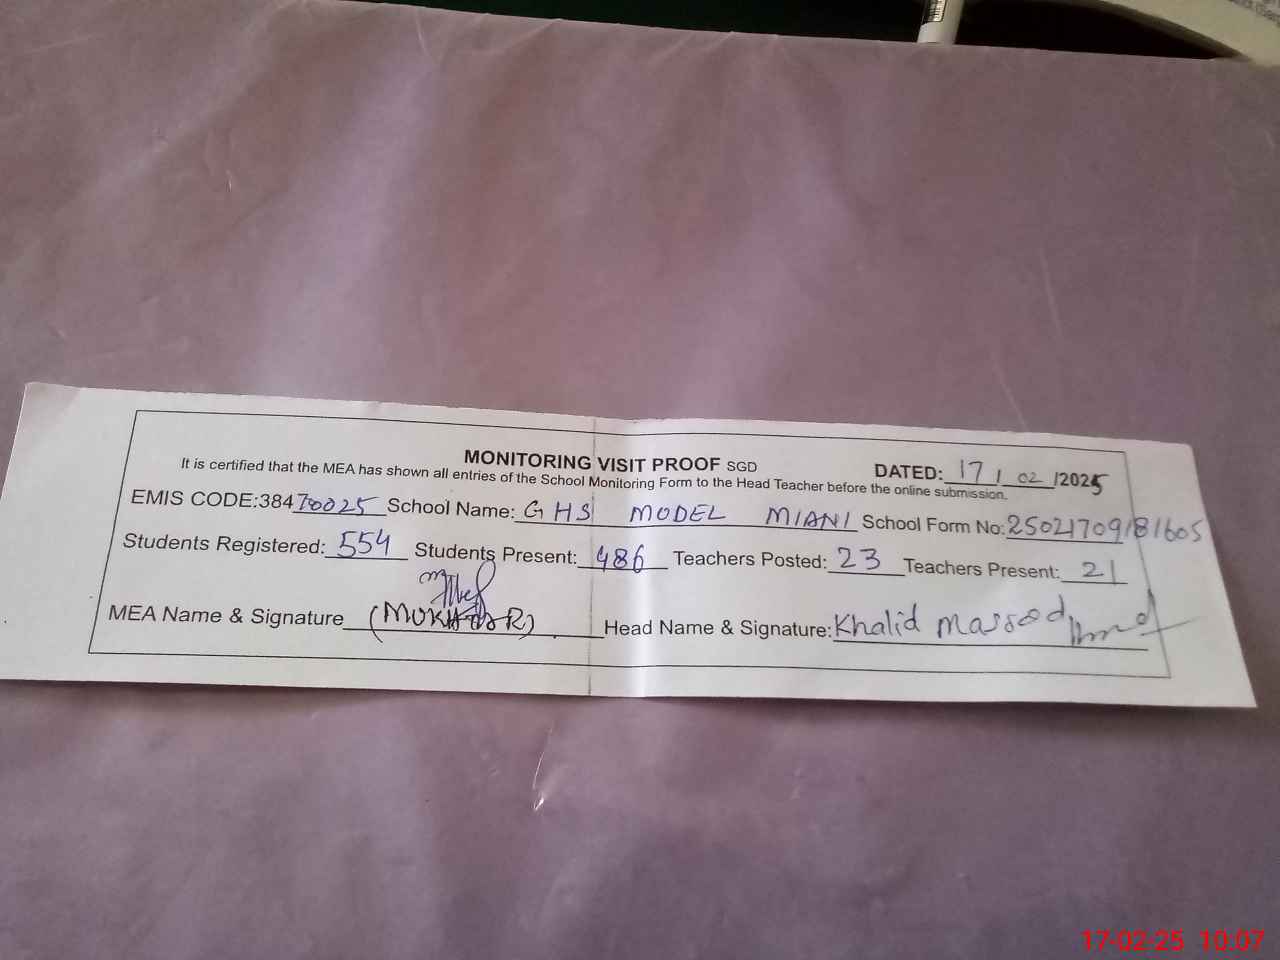 MONITORING VISIT PROOF SGD DATED: 17/02/2025
It is certified that the MEA has shown all entries of the School Monitoring Form to the Head Teacher before the online submission.
EMIS CODE:38470025 School Name: GHS MODEL MIANI School Form No: 25021709181605
Students Registered: 554 Students Present: 486 Teachers Posted: 23 Teachers Present: 21
MEA Name & Signature (MUKHTAR) Head Name & Signature: Khalid Massod
17-02-25 10:07